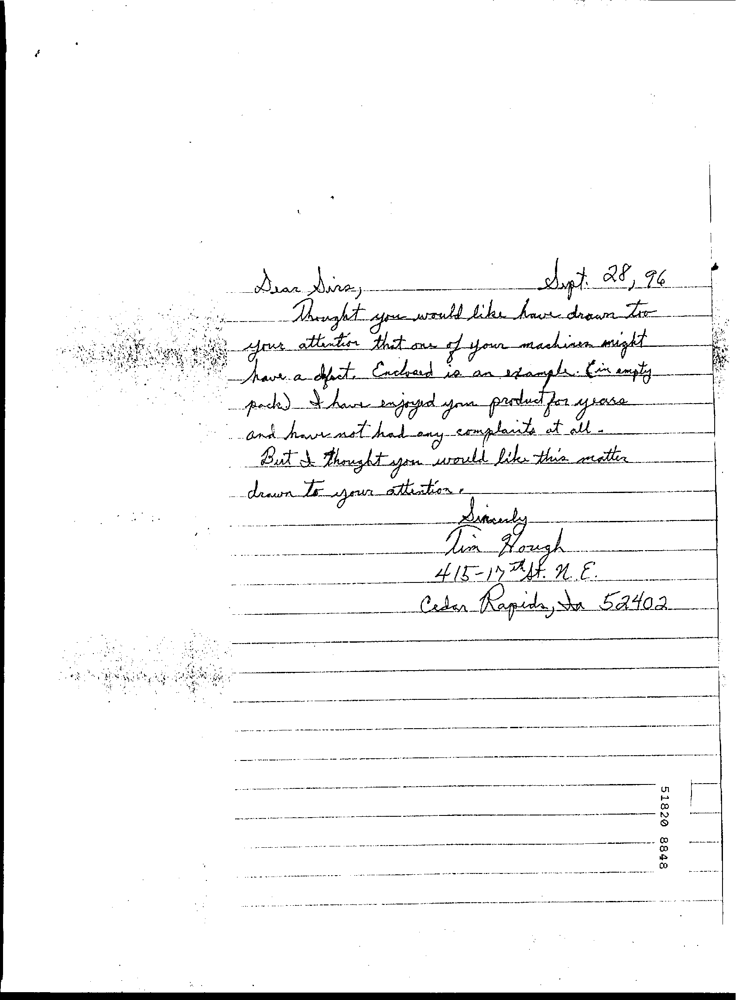 Dear Sirs, Sept. 28, 96
Thought you would like have drawn too
your attention that one of your machines might
have a defect. Enclosed is an example. (in empty
pack) I have enjoyed your product for years
and have not had any complaints at all.
But I thought you would like this matter
drawn to your attention.
Sincerely
Tim Hough
415-17th St. N.E.
Cedar Rapids, Ia 52402
51820 8848